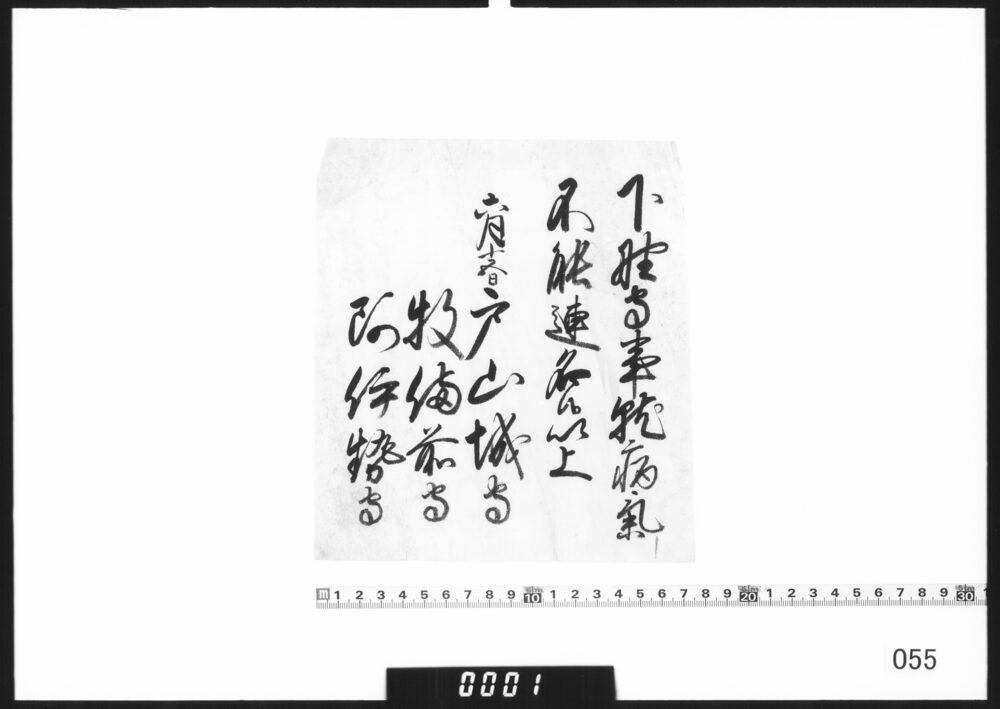 下総守事就病氣
不能連名候以上
六月十六日
戸山城守
牧備前守
阿伊勢守
1 2 3 4 5 6 7 8 9 10 1 2 3 4 5 6 7 8 9 20 1 2 3 4 5 6 7 8 9 30
055
0001